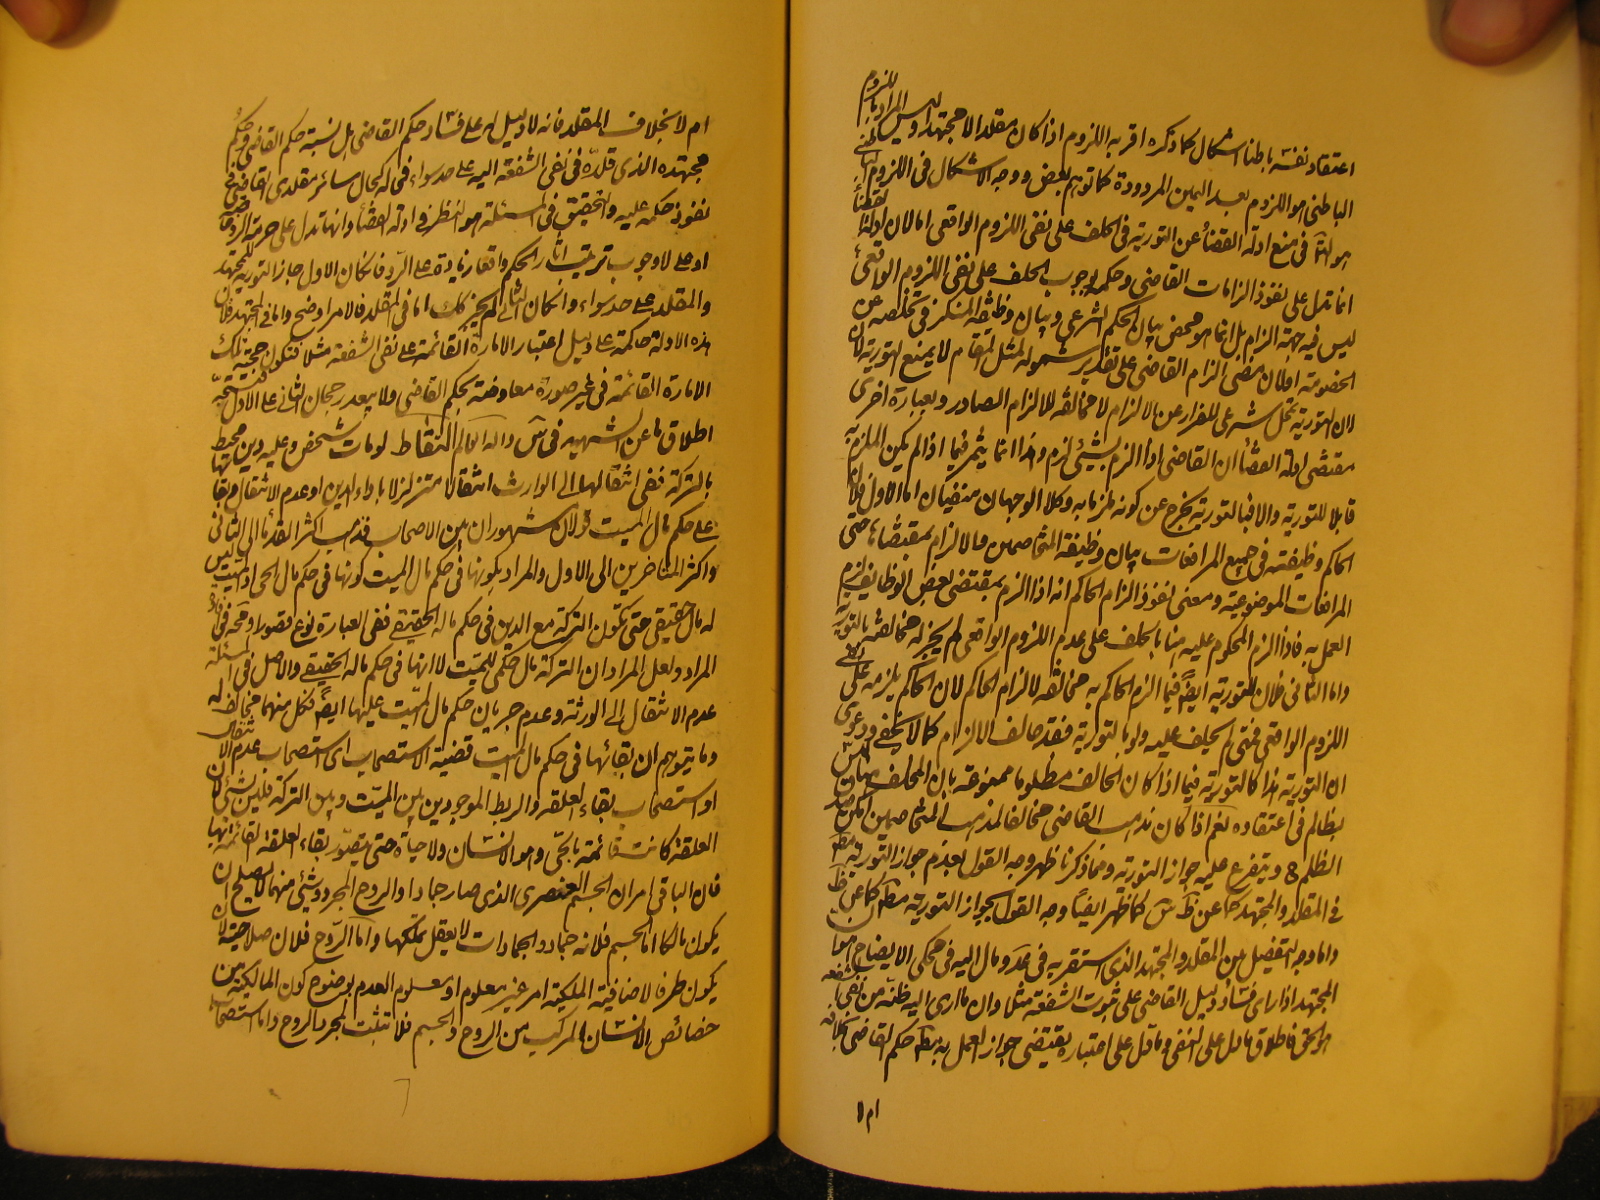 اعتقاد نفسه باطنا اشكال كما ذكره اقربه اللزوم اذا كان مقلدا لا مجتهدا وليس المراد باللزوم
الباطنى هو اللزوم بعد اليمين المردودة كما توهم بعض ووجه الاشكال فى اللزوم الباطنى
هو التأمل فى منع ادلة القضاء عن التورية فى الحلف على نفى اللزوم الواقعى اما لان ادلة القضاء
انما تدل على نفوذ الزامات القاضى وحكمه بوجوب الحلف على نفى اللزوم الواقعى
ليس فيه جهة الزام بل انما هو محض بيان الحكم الشرعى وبيان وظيفة المنكر فى تخلصه عن
الخصومة او لان مضى الزام القاضى على تقدير شموله لمثل المقام لا يمنع التورية لان
لان التورية تمحل شرعى للفرار عن الالزام لا مخالفة للالزام الصادر وبعبارة اخرى
مقتضى ادلة القضاء ان القاضى اذا الزم بشيئ لزم وهذا انما يثمر فيما اذا لم يكن الملزم به
قابلا للتورية والا فبالتورية يخرج عن كونه ملزما به وكلا الوجهان منفيان اما الاول فلان
الحاكم وظيفته فى جميع المرافعات بيان وظيفة المتخاصمين والالزام بمقتضاها حتى
المرافعات الموضوعية ومعنى نفوذ الزام الحاكم انه اذا الزم بمقتضى بعض الوظايف لزم
العمل به فاذا الزم المحكوم عليه هنا بالحلف على عدم اللزوم الواقعى لم يجز له مخالفته بالتورية
واما الثانى فلان التورية ايضا فيما الزم الحاكم به مخالفة لالزام الحاكم لان الحاكم يلزمه على نفى
اللزوم الواقعى فمتى لم يحلف عليه ولو بالتورية فقد خالف الالزام كما لا يخفى ودعوى
ان التورية هنا كالتورية فيما اذا كان الحالف مظلوما ممنوعة بان المحلف هنا ليس
بظالم فى اعتقاده نعم اذا كان مذهب القاضى مخالفا لمذهب المتخاصمين امكن صدق
الظلم ويتفرع عليه جواز التورية ومما ذكرنا ظهر وجه القول بعدم جواز التورية مطلقا
فى المقلد والمجتهد كما عن كما ظهر ايضا وجه القول بجواز التورية مطلقا كما عن
واما وجه التفصيل بين المقلد والمجتهد الذى استقر به فى ومال اليه فى محكى الايضاح هو ان
المجتهد اذا راى فساد دليل القاضى على ثبوت الشفعة مثلا وان ما ارى اليه ظنه من نفى الشفعة
هو الحق فاطلاق ما دل على النفى وما دل على اعتباره يقتضى جواز العمل به مطلقا حكم القاضى بخلافه
ام لا
ام لا بخلاف المقلد فانه لا دليل له على فساد حكم القاضى بل نسبة حكم القاضى وحكم
مجتهده الذى قلده فى نفى الشفعة اليه على حد سواء فحاله كحال سائر مقلدى القاضى فى
نفوذ حكمه عليه والتحقيق فى المسئلة هو النظر فى ادلة القضاء وانها تدل على حرمة الرد
او على لا وجوب ترتيب اثار الحكم واقعا زيادة على الرد فان كان الاول جاز التورية للمجتهد
والمقلد على حد سواء وان كان الثانى لم يجز كك اما فى المقلد فالامر اوضح واما فى المجتهد فلان
هذه الادلة حاكمة على دليل اعتبار الامارة القائمة على نفى الشفعة مثلا فتكون حجية تلك
الامارة القائمة فى غير صورة معارضته بحكم القاضى ولا يبعد رجحان الثانى على الاول
اطلاق ما عن الشهيد فى والله العالم التقاط لو مات شخص وعليه دين محيط
بالتركة ففى انتقالها الى الوارث انتقالا متزلزلا باداء الدين او عدم الانتقال وبقائها
على حكم مال الميت قولان مشهوران بين الاصحاب فذهب اكثر القدماء الى الثانى
واكثر المتاخرين الى الاول والمراد بكونها فى حكم مال الميت كونها فى حكم مال الحى اذ الميت ليس
له مال حقيقى حتى تكون التركة مع الدين فى حكم ماله الحقيقى ففى العبارة نوع قصور ومسامحة فى افادة
المراد ولعل المراد ان التركة مال حكمى للميت لا انها فى حكم ماله الحقيقى والاصل فى المسئلة
عدم الانتقال الى الورثة وعدم جريان حكم مال الميت عليها ايضا فكل منهما مخالف له
وما يتوهم ان بقائها فى حكم مال الميت قضية الاستصحاب اى استصحاب عدم الانتقال
او استصحاب بقاء العلقة والربط الموجودين بين الميت وبين التركة فليس بشئ لان
العلقة كانت قائمة بالحى وهو الانسان ولا حياة حتى يتصور بقاء العلقة القائمة بها
فان الباقى امران الجسم العنصرى الذى صار جمادا والروح المجرد وشئ منهما لا يصلح ان
يكون مالكا اما الجسم فلانه جماد والجمادات لا يعقل تملكها واما الروح فلان صلاحيته لان
يكون طرفا لاضافية الملكية امر غير معلوم او معلوم العدم بوضوح كون المالكية من
خصائص الانسان المركب من الروح والجسم فلا تثبت لمجرد الروح واما استصحاب